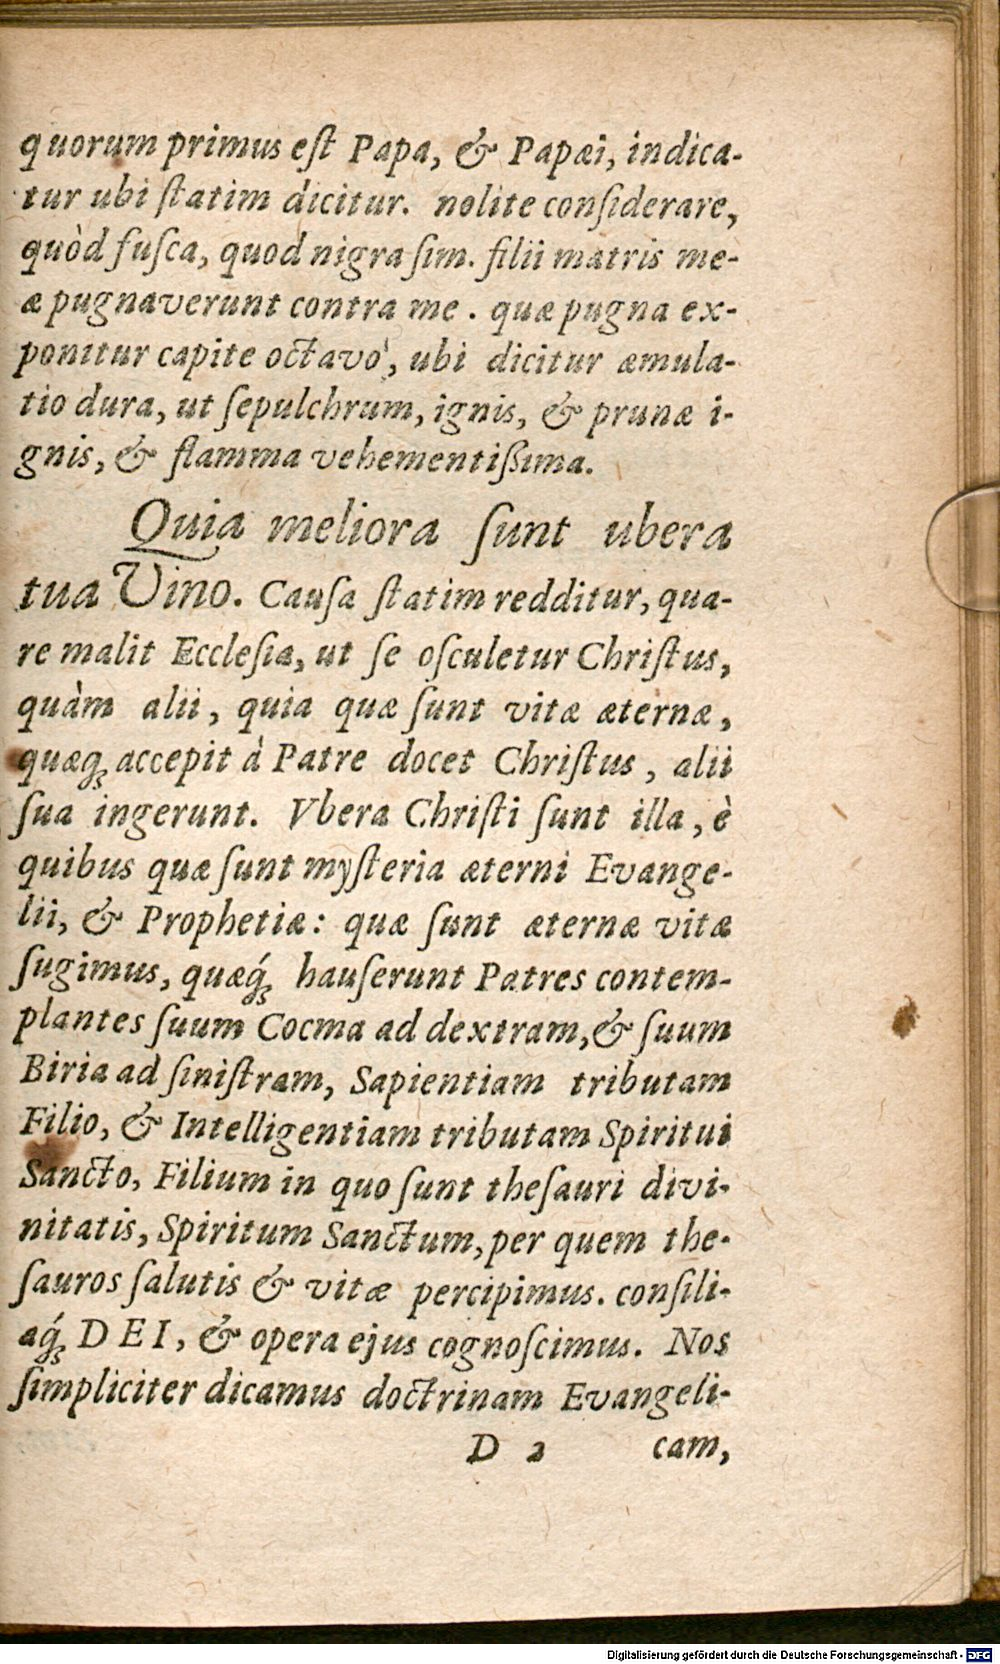 quorum primus eſt Papa, & Papæi, indica-
tur ubi ſtatim dicitur. nolite conſiderare,
quòd fuſca, quod nigra ſim. filii matris me-
æ pugnaverunt contra me. quæ pugna ex-
ponitur capite octavò, ubi dicitur æmula-
tio dura, ut ſepulchrum, ignis, & prunæ i-
gnis, & flamma vehementiſſima.
Quia meliora ſunt ubera
tua Vino. Cauſa ſtatim redditur, qua-
re malit Eccleſia, ut ſe oſculetur Chriſtus,
quàm alii, quia quæ ſunt vitæ æternæ,
quæq; accepit à Patre docet Chriſtus, alii
ſua ingerunt. Vbera Chriſti ſunt illa, è
quibus quæ ſunt myſteria æterni Evange-
lii, & Prophetiæ: quæ ſunt æternæ vitæ
ſugimus, quæq́; hauſerunt Patres contem-
plantes ſuum Cocma ad dextram, & ſuum
Biria ad ſiniſtram, Sapientiam tributam
Filio, & Intelligentiam tributam Spiritui
Sancto, Filium in quo ſunt theſauri divi-
nitatis, Spiritum Sanctum, per quem the-
ſauros ſalutis & vitæ percipimus. conſili-
aq́; DEI, & opera ejus cognoſcimus. Nos
ſimpliciter dicamus doctrinam Evangeli-
D 2 cam,
Digitalisierung gefördert durch die Deutsche Forschungsgemeinschaft - DFG